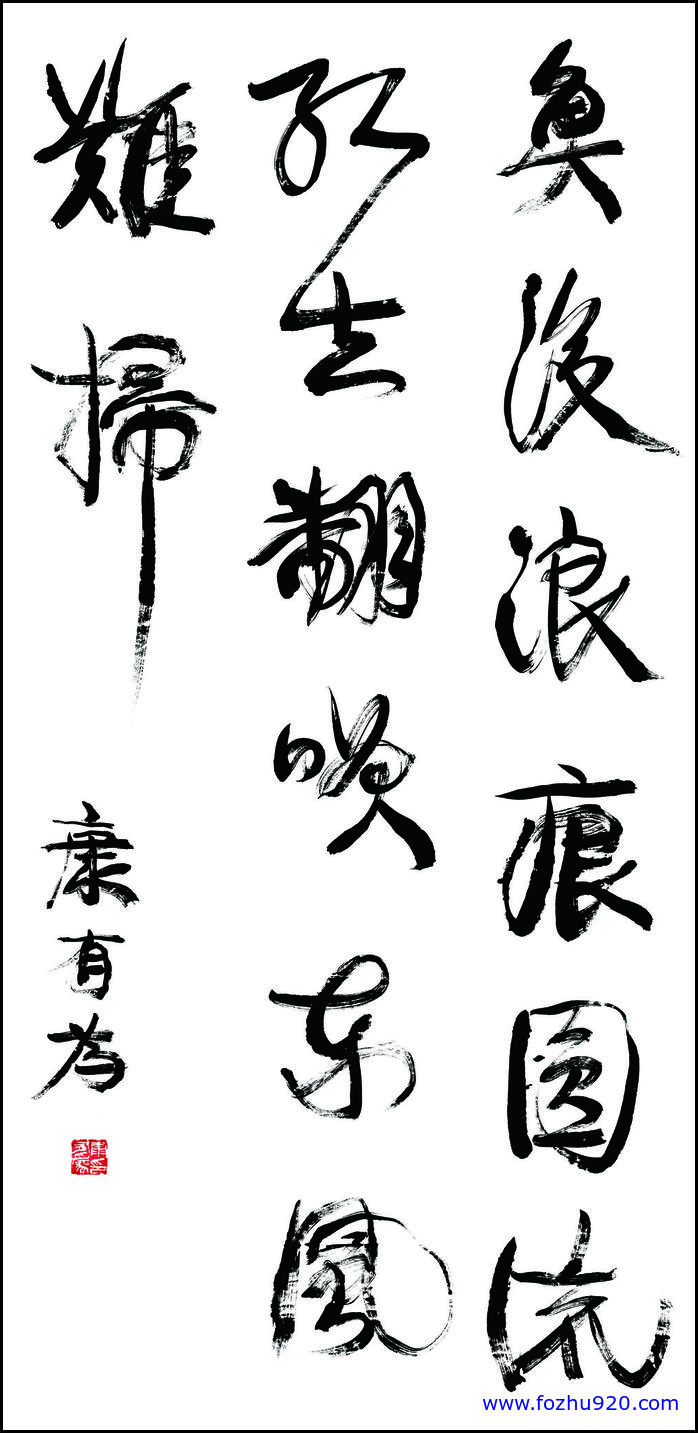 魚沒浪痕圓流
紅去翻咲東風
難掃
康有為
www.fozhu920.com